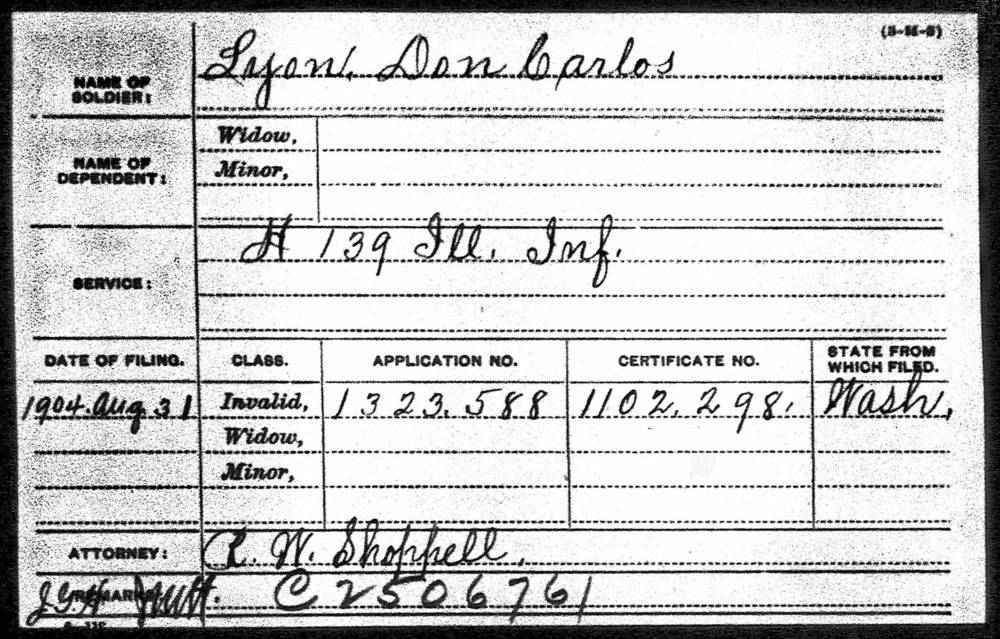 (3-M-3)
NAME OF SOLDIER: Lyon, Don Carlos
NAME OF DEPENDENT: Widow,
Minor,
SERVICE: H 139 Ill. Inf.
DATE OF FILING. CLASS. APPLICATION NO. CERTIFICATE NO. STATE FROM WHICH FILED.
1904. Aug. 31 Invalid, 1323.588 1102.298. Wash,
Widow,
Minor,
ATTORNEY: R. W. Shoppell,
REMARKS: C 2506761